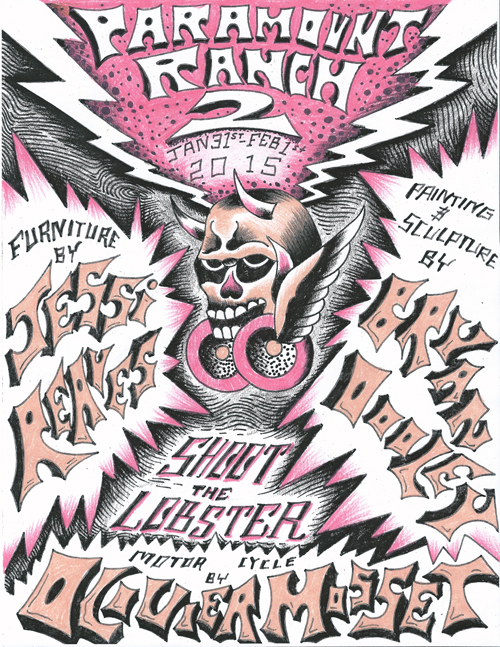 PARAMOUNT
RANCH
2
JAN 31ST-FEB 1ST
2015
FURNITURE
BY
JESSI
REAVES
PAINTING
&
SCULPTURE
BY
BRYAN
DOOLEY
SHOOT
THE
LOBSTER
MOTOR CYCLE
BY
OLIVIER MOSSET